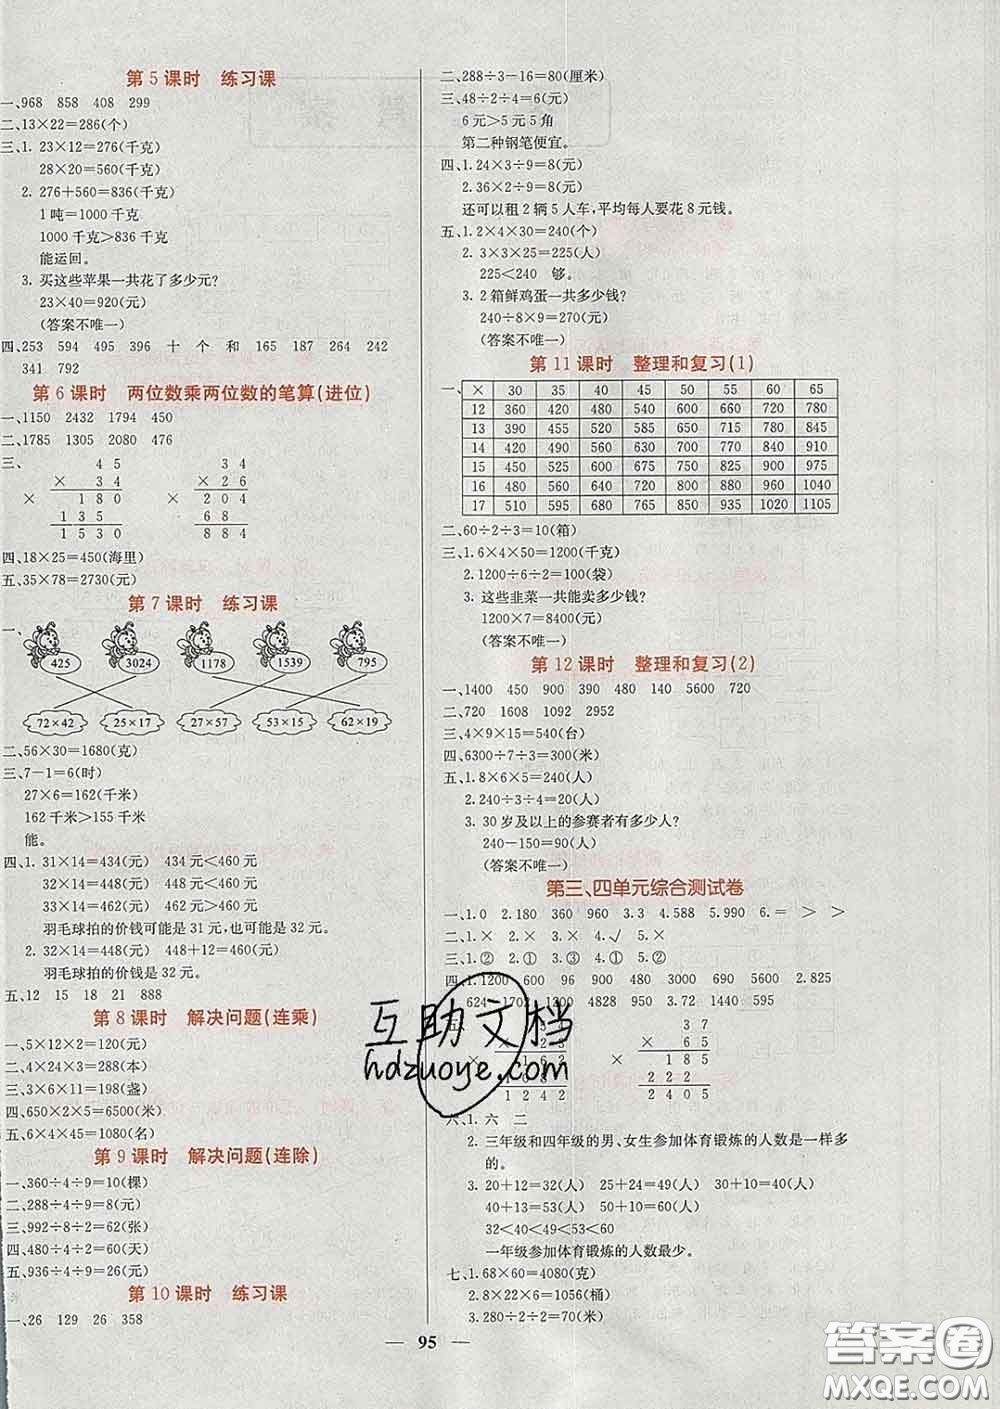 第5课时 练习课
一、968 858 408 299
二、13×22=286(个)
三、1. 23×12=276(千克)
28×20=560(千克)
2. 276+560=836(千克)
1吨=1000千克
1000千克>836千克
能运回。
3. 买这些苹果一共花了多少元?
23×40=920(元)
(答案不唯一)
四、253 594 495 396 十 个 和 165 187 264 242
341 792
第6课时 两位数乘两位数的笔算(进位)
一、1150 2432 1794 450
二、1785 1305 2080 476
三、 4 5 3 4
× 3 4 × 2 6
× 1 8 0 × 2 0 4
1 3 5 6 8
1 5 3 0 8 8 4
四、18×25=450(海里)
五、35×78=2730(元)
第7课时 练习课
一、
425 3024 1178 1539 795
72×42 25×17 27×57 53×15 62×19
二、56×30=1680(克)
三、7-1=6(时)
27×6=162(千米)
162千米>155千米
能。
四、1. 31×14=434(元) 434元<460元
32×14=448(元) 448元<460元
33×14=462(元) 462元>460元
羽毛球拍的价钱可能是31元,也可能是32元。
2. 32×14=448(元) 448+12=460(元)
羽毛球拍的价钱是32元。
五、12 15 18 21 888
第8课时 解决问题(连乘)
一、5×12×2=120(元)
二、4×24×3=288(本)
三、3×6×11=198(盏)
四、650×2×5=6500(米)
五、6×4×45=1080(名)
第9课时 解决问题(连除)
一、360÷4÷9=10(棵)
二、288÷4÷9=8(元)
三、992÷8÷2=62(张)
四、480÷4÷2=60(天)
五、936÷4÷9=26(元)
第10课时 练习课
一、26 129 26 358
二、288÷3-16=80(厘米)
三、48÷2÷4=6(元)
6元>5元5角
第二种钢笔便宜。
四、1. 24×3÷9=8(元)
2. 36×2÷9=8(元)
还可以租2辆5人车,平均每人要花8元钱。
五、1. 2×4×30=240(个)
2. 3×3×25=225(人)
225<240 够。
3. 2箱鲜鸡蛋一共多少钱?
240÷8×9=270(元)
(答案不唯一)
第11课时 整理和复习(1)
一、 × 30 35 40 45 50 55 60 65
12 360 420 480 540 600 660 720 780
13 390 455 520 585 650 715 780 845
14 420 490 560 630 700 770 840 910
15 450 525 600 675 750 825 900 975
16 480 560 640 720 800 880 960 1040
17 510 595 680 765 850 935 1020 1105
二、60÷2÷3=10(箱)
三、1. 6×4×50=1200(千克)
2. 1200÷6÷2=100(袋)
3. 这些韭菜一共能卖多少钱?
1200×7=8400(元)
(答案不唯一)
第12课时 整理和复习(2)
一、1400 450 900 390 480 140 5600 720
二、720 1608 1092 2952
三、4×9×15=540(台)
四、6300÷7÷3=300(米)
五、1. 8×6×5=240(人)
2. 240÷3÷4=20(人)
3. 30岁及以上的参赛者有多少人?
240-150=90(人)
(答案不唯一)
第三、四单元综合测试卷
一、1. 0 2. 180 360 960 3. 3 4. 588 5. 990 6. = > >
二、1. × 2. × 3. × 4. √ 5. ×
三、1. ② 2. ① 3. ③ 4. ① 5. ②
四、1. 1200 600 96 900 480 3000 690 5600 2. 825
624 1702 1200 4828 950 3. 72 1440 595
3 7
× 6 5
1 6 2 × 1 8 5
1 0 8 2 2 2
1 2 4 2 2 4 0 5
六、1. 六 二
2. 三年级和四年级的男、女生参加体育锻炼的人数是一样多
的。
3. 20+12=32(人) 25+24=49(人)
40+13=53(人) 50+10=60(人)
32<40<49<53<60
一年级参加体育锻炼的人数最少。
七、1. 68×60=4080(克)
2. 8×22×6=1056(桶)
3. 280÷2÷2=70(米)
95
互助文档
hdzuoye.com
答案圈
MXQE.COM